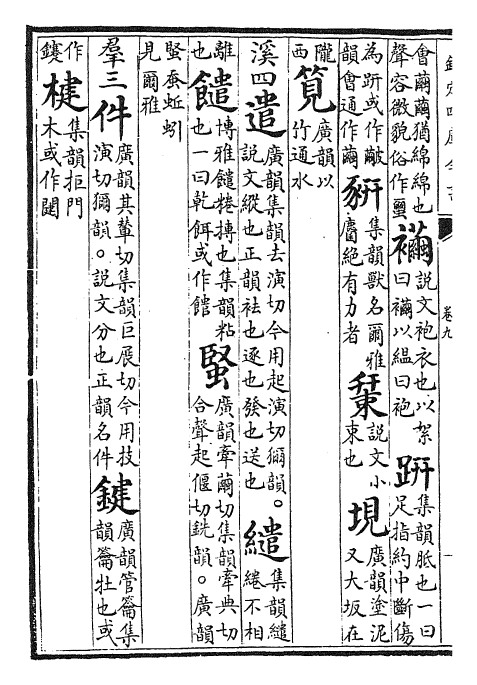 欽定四庫全書
卷九
會繭繭猶綿綿也聲容微貌俗作 襺說文袍衣也以絮曰襺以縕曰袍 趼集韻胝也一曰足指約中斷傷
為趼或作 韻會通作繭 豣集韻獸名爾雅麕絕有力者 䅌說文小束也 垷廣韻塗泥又大坂在
隴西 筧廣韻以竹通水
溪四遣廣韻集韻去演切今用起演切獮韻。說文縱也正韻祛也逐也發也送也 繾集韻繾綣不相
離也 博雅 摶也集韻粘也一曰乾餌或作 蜸廣韻牽繭切集韻牽典切合聲起偃切銑韻。廣韻
蜸蚕蚯蚓見爾雅
羣三件廣韻其輦切集韻巨展切今用技演切獮韻。說文分也正韻名件 鍵廣韻管籥集韻籥牡也或
作鑳 楗集韻拒門木或作